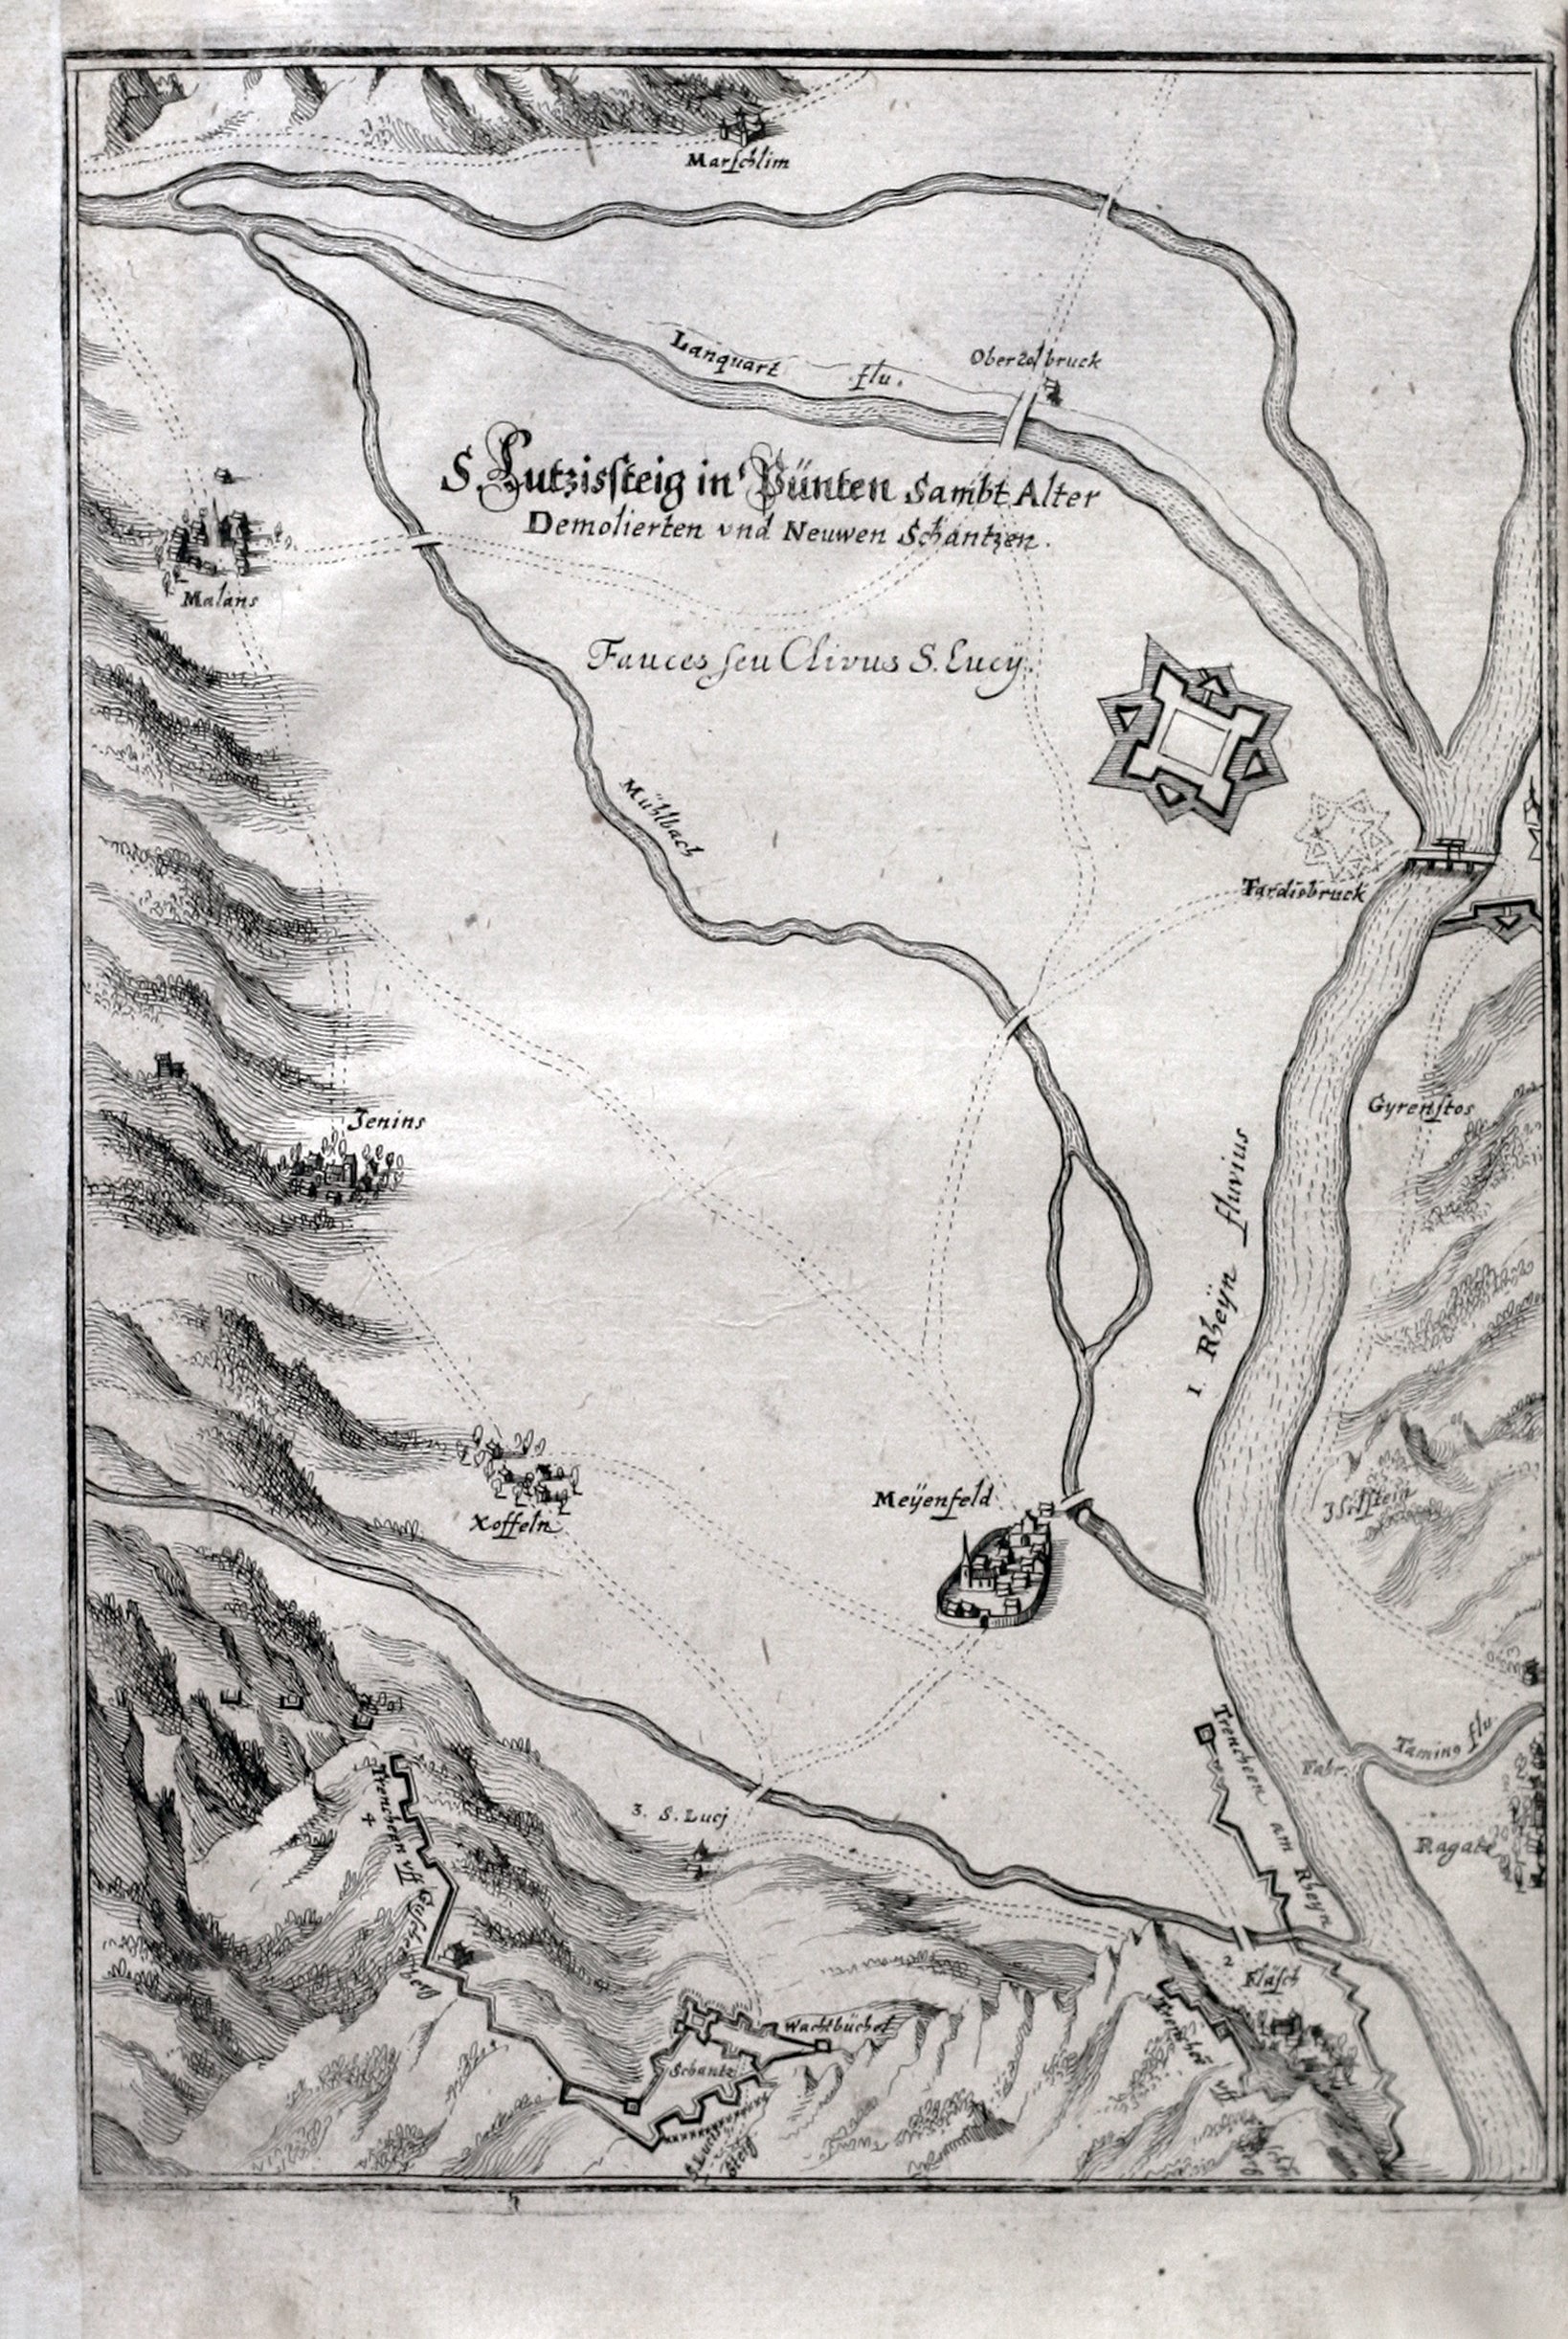 Marschlim
Lanquart flu.
Oberzolbruck
S. Lutzissteig in Pünten Sambt Alter
Demolierten vnd Neuwen Schantzen.
Malans
Fauces seu Clivus S. Lucÿ.
Mühlbach
Tardisbruck
Gyrenstos
Jenins
1. Rheÿn fluvius
Meÿenfeld
Xoffeln
Trencheen am Rheyn
Taming flu.
Fahr.
Ragatz
3. S. Lucj
Trencheen vff
4
2
Fläsch
Wachtbüchel
Schantz
S. Lucis
steig
vff